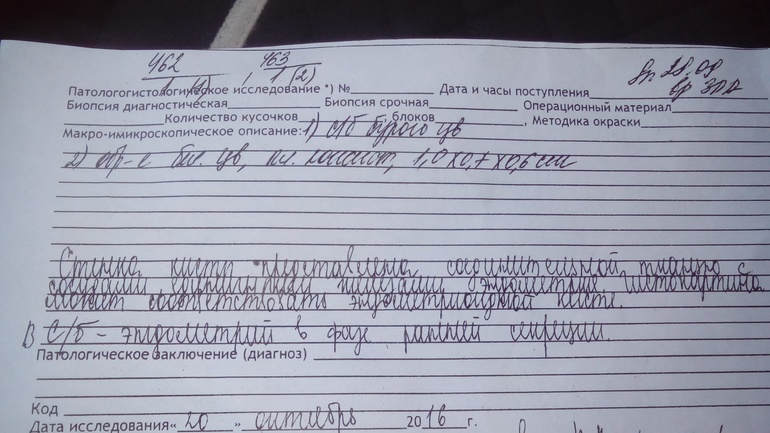 462 463
1 (2)
Патологогистологическое исследование *) № Дата и часы поступления 28.09
Биопсия диагностическая Биопсия срочная Операционный материал
Количество кусочков , блоков , Методика окраски
Макро-имикроскопическое описание: 1) с/б бурого цв
2) обр-е бел. цв, пл. консист, 1,0х0,7х0,6 см
Стенка кисты представлена соединительной тканью с
сосудами, эндометрия
может соответствовать эндометриоидной кисте.
В с/б - эндометрий в фазе ранней секреции.
Патологическое заключение (диагноз)
Код
Дата исследования« 20 » октябрь 2016 г.